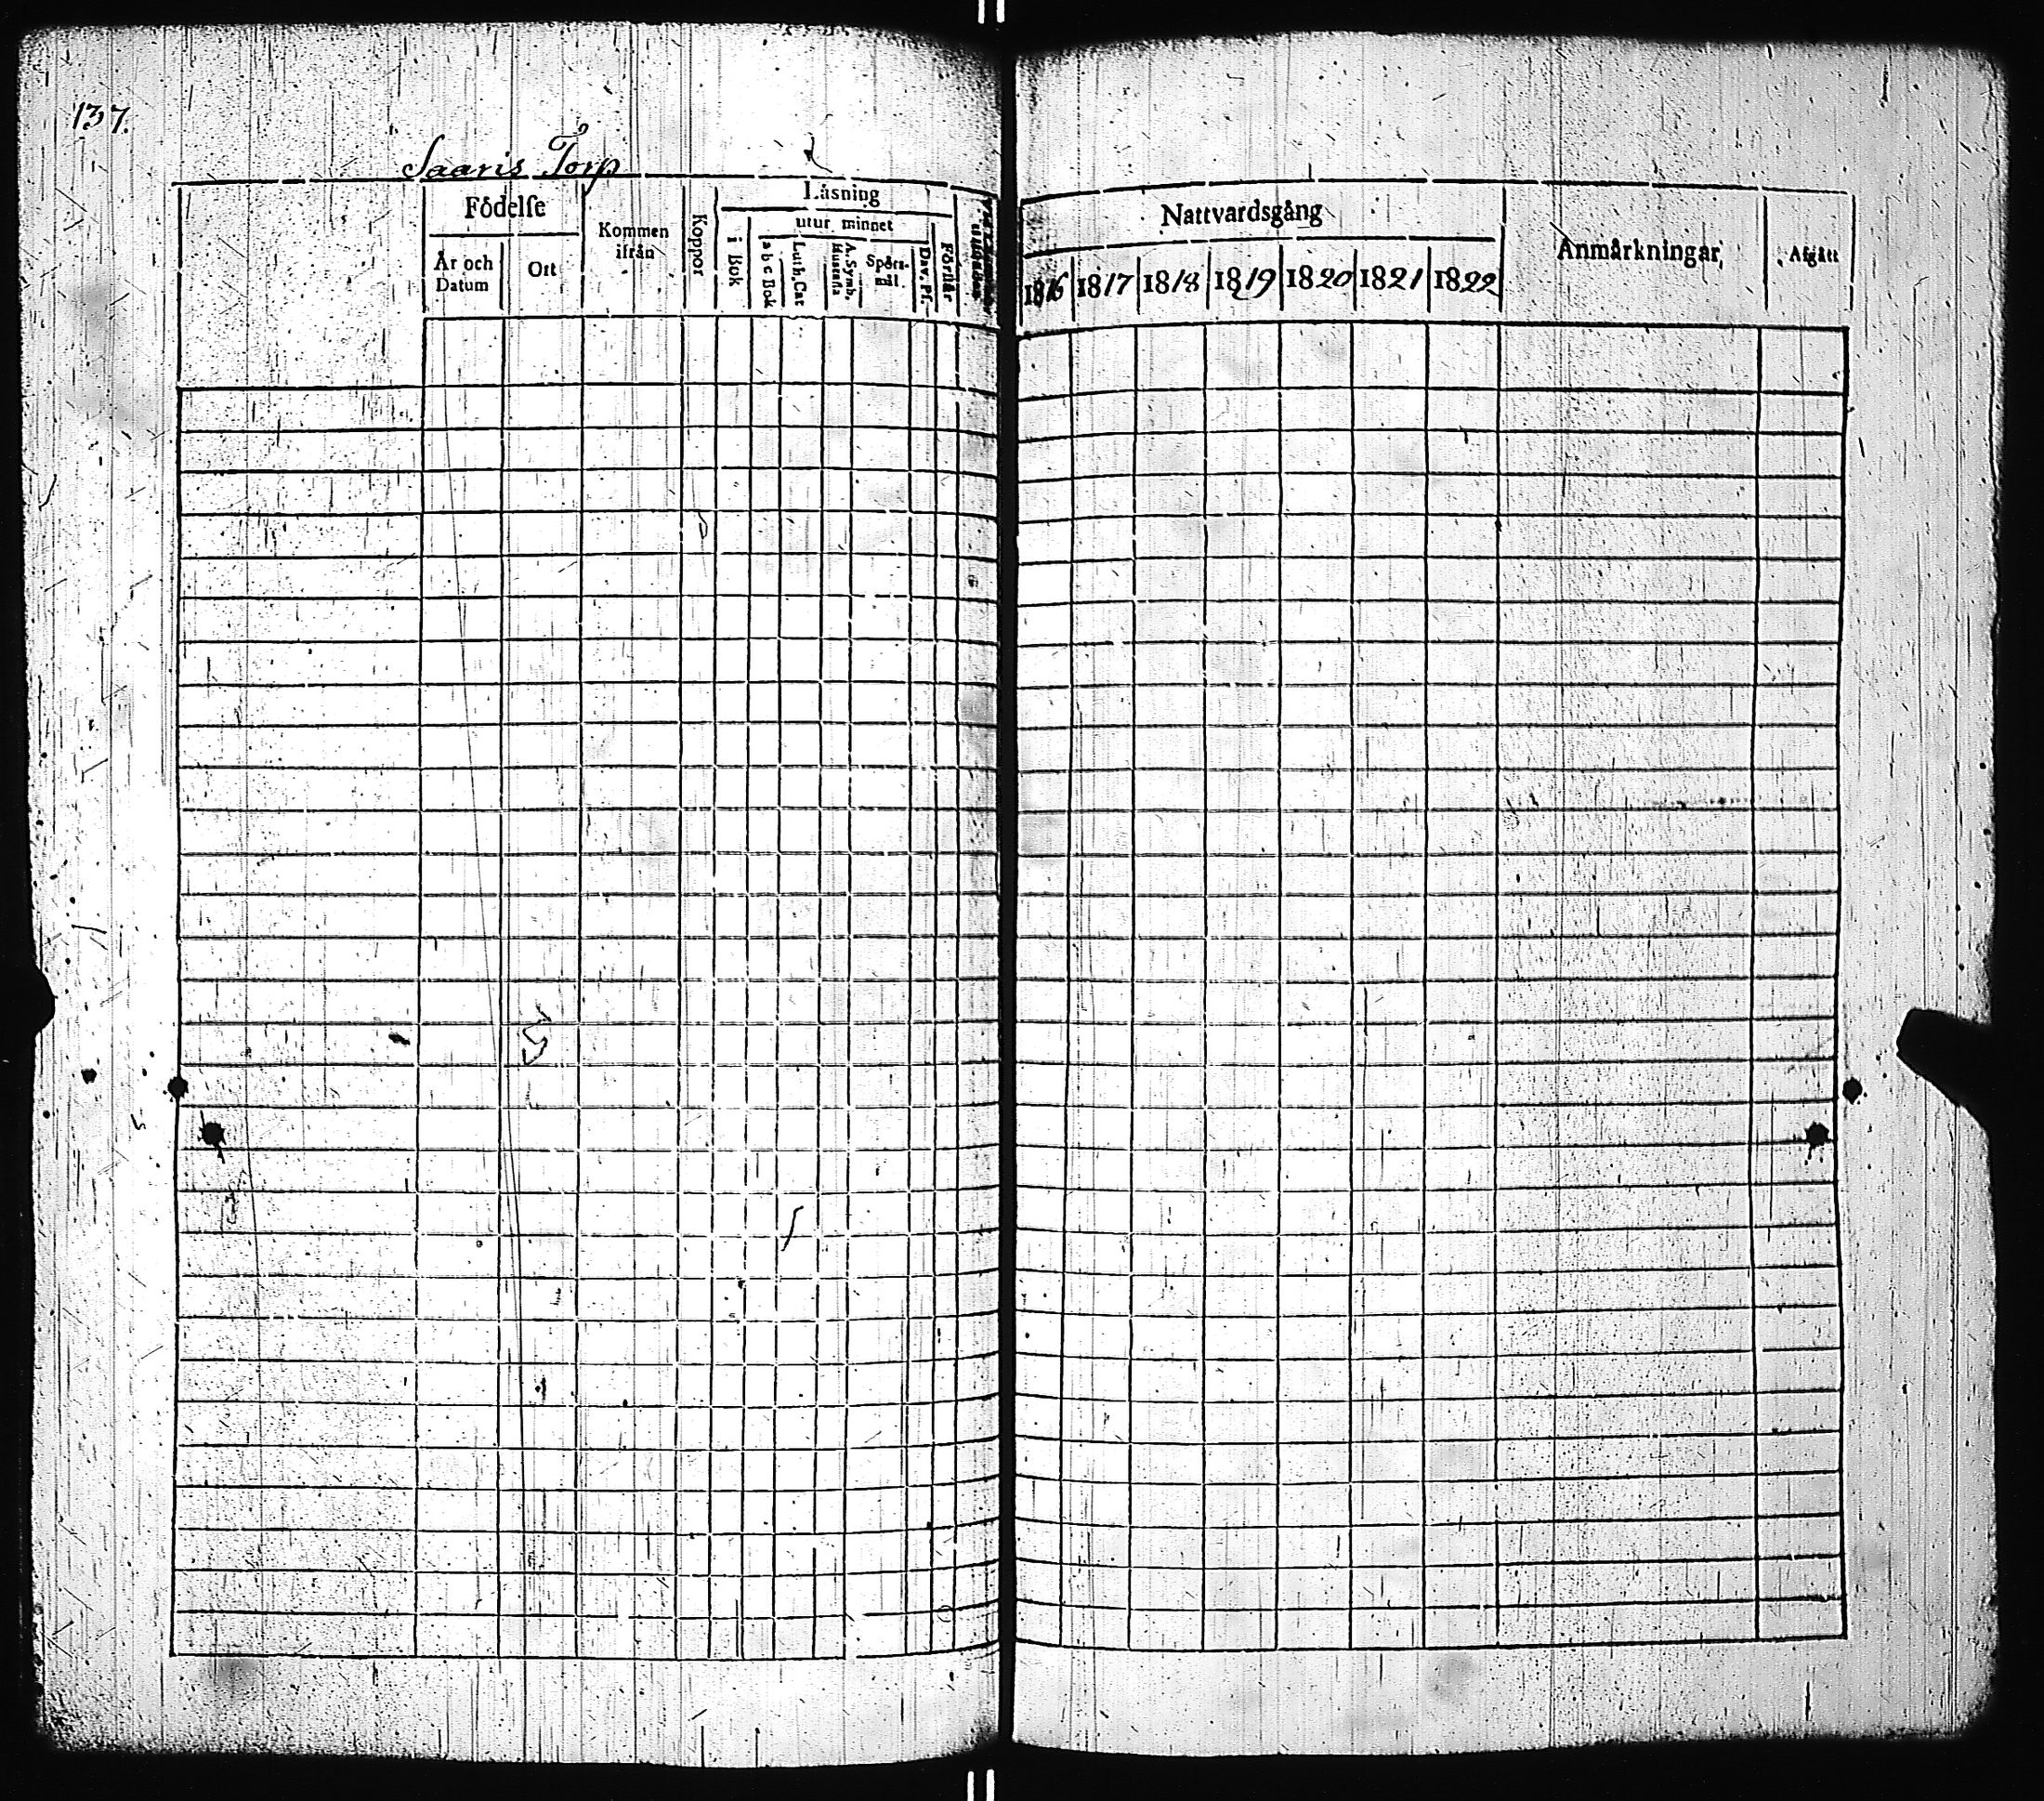 137.
Saaris Torp
Födelse
År och Datum
Ort
Kommen ifrån
Koppor
Läsning
i Bok
utur minnet
a b c Bok
Luth. Cat
A. Symb. Hustafla
Spörs-mål
Dav. Ps.
Förstår
Nattvardsgång
1816 1817 1818 1819 1820 1821 1822
Anmärkningar
Afgått